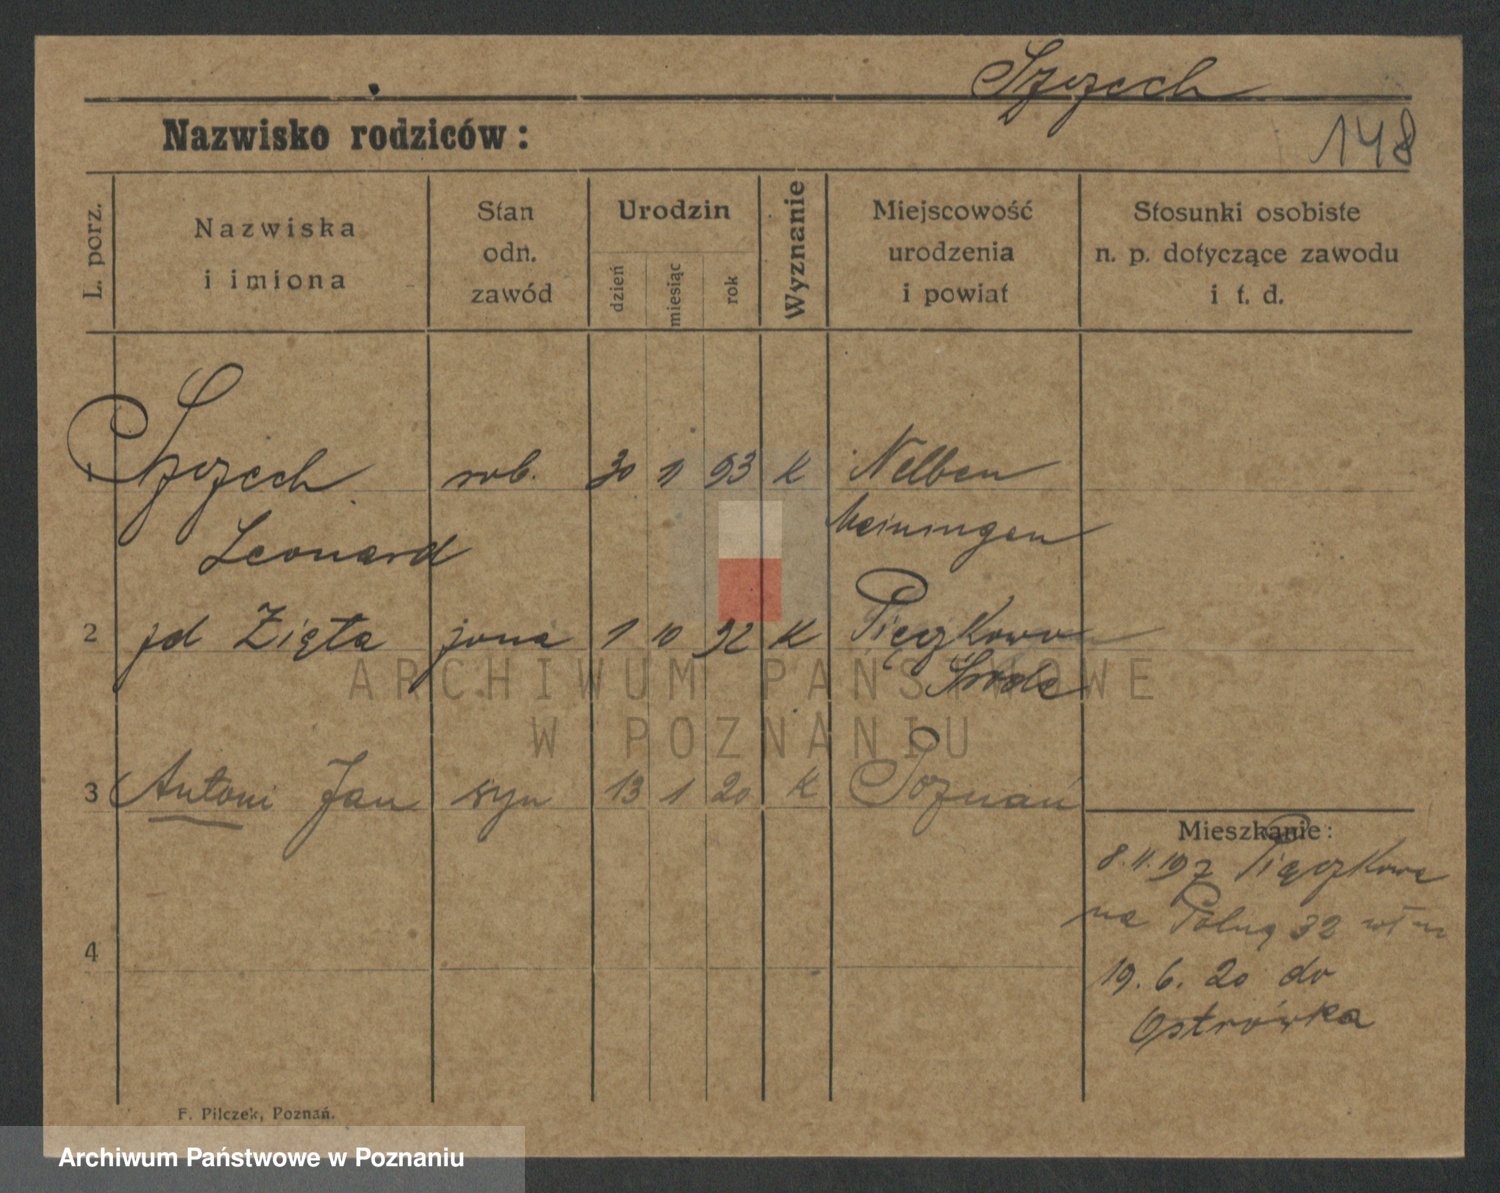 Szczech
148
Nazwisko rodziców:
L. porz.
Nazwiska
i imiona
Stan
odn.
zawód
Urodzin
dzień
miesiąc
rok
Wyznanie
Miejscowość
urodzenia
i powiat
Stosunki osobiste
n. p. dotyczące zawodu
i t. d.
1 Szczech rob. 30 11 93 K Nelben
Leonard Meiningen
2 jd Zięta żona 1 10 92 K Pięczkowo
Środa
3 Antoni Jan syn 13 1 20 K Poznań
4
Mieszkanie:
8. 11. 19 z Pięczkowa
na Polną 32
19. 6. 20 do
Ostrówka
F. Pilczek, Poznań.
ARCHIWUM PAŃSTWOWE
W POZNANIU
Archiwum Państwowe w Poznaniu